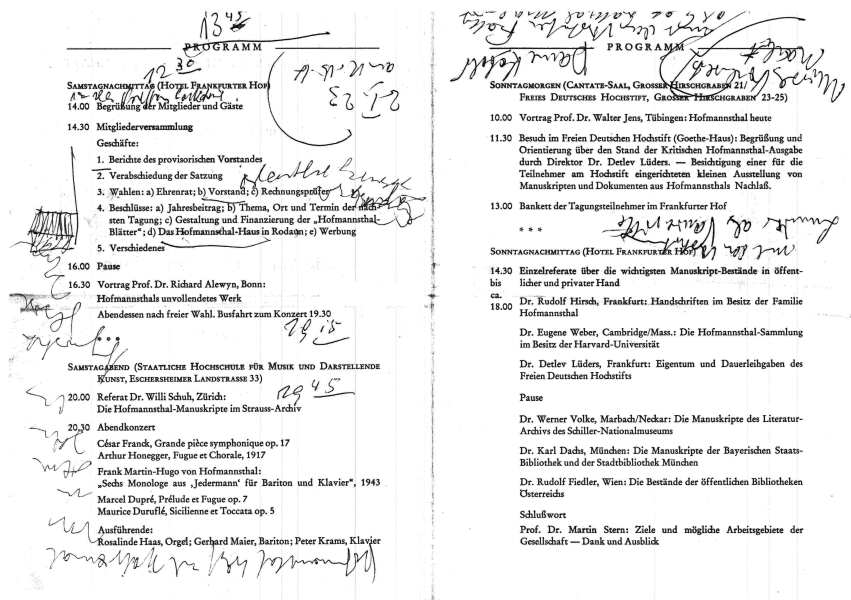 13 45
PROGRAMM
12 30
SAMSTAGNACHMITTAG (HOTEL FRANKFURTER HOF)
14.00 Begrüßung der Mitglieder und Gäste
14.30 Mitgliederversammlung
Geschäfte:
1. Berichte des provisorischen Vorstandes
2. Verabschiedung der Satzung
3. Wahlen: a) Ehrenrat; b) Vorstand; c) Rechnungsprüfer
4. Beschlüsse: a) Jahresbeitrag; b) Thema, Ort und Termin der näch-
sten Tagung; c) Gestaltung und Finanzierung der „Hofmannsthal-
Blätter“; d) Das Hofmannsthal-Haus in Rodaun; e) Werbung
5. Verschiedenes
16.00 Pause
16.30 Vortrag Prof. Dr. Richard Alewyn, Bonn:
Hofmannsthals unvollendetes Werk
Abendessen nach freier Wahl. Busfahrt zum Konzert 19.30
19 15
***
SAMSTAGABEND (STAATLICHE HOCHSCHULE FÜR MUSIK UND DARSTELLENDE
KUNST, ESCHERSHEIMER LANDSTRASSE 33)
19 45
20.00 Referat Dr. Willi Schuh, Zürich:
Die Hofmannsthal-Manuskripte im Strauss-Archiv
20.30 Abendkonzert
César Franck, Grande pièce symphonique op. 17
Arthur Honegger, Fugue et Chorale, 1917
Frank Martin-Hugo von Hofmannsthal:
„Sechs Monologe aus ‚Jedermann‘ für Bariton und Klavier“, 1943
Marcel Dupré, Prélude et Fugue op. 7
Maurice Duruflé, Sicilienne et Toccata op. 5
Ausführende:
Rosalinde Haas, Orgel; Gerhard Maier, Bariton; Peter Krams, Klavier
PROGRAMM
SONNTAGMORGEN (CANTATE-SAAL, GROSSER HIRSCHGRABEN 21/
FREIES DEUTSCHES HOCHSTIFT, GROSSER HIRSCHGRABEN 23-25)
10.00 Vortrag Prof. Dr. Walter Jens, Tübingen: Hofmannsthal heute
11.30 Besuch im Freien Deutschen Hochstift (Goethe-Haus): Begrüßung und
Orientierung über den Stand der Kritischen Hofmannsthal-Ausgabe
durch Direktor Dr. Detlev Lüders. — Besichtigung einer für die
Teilnehmer am Hochstift eingerichteten kleinen Ausstellung von
Manuskripten und Dokumenten aus Hofmannsthals Nachlaß.
13.00 Bankett der Tagungsteilnehmer im Frankfurter Hof
***
SONNTAGNACHMITTAG (HOTEL FRANKFURTER HOF)
14.30 Einzelreferate über die wichtigsten Manuskript-Bestände in öffent-
bis licher und privater Hand
ca.
18.00 Dr. Rudolf Hirsch, Frankfurt: Handschriften im Besitz der Familie
Hofmannsthal
Dr. Eugene Weber, Cambridge/Mass.: Die Hofmannsthal-Sammlung
im Besitz der Harvard-Universität
Dr. Detlev Lüders, Frankfurt: Eigentum und Dauerleihgaben des
Freien Deutschen Hochstifts
Pause
Dr. Werner Volke, Marbach/Neckar: Die Manuskripte des Literatur-
Archivs des Schiller-Nationalmuseums
Dr. Karl Dachs, München: Die Manuskripte der Bayerischen Staats-
Bibliothek und der Stadtbibliothek München
Dr. Rudolf Fiedler, Wien: Die Bestände der öffentlichen Bibliotheken
Österreichs
Schlußwort
Prof. Dr. Martin Stern: Ziele und mögliche Arbeitsgebiete der
Gesellschaft — Dank und Ausblick